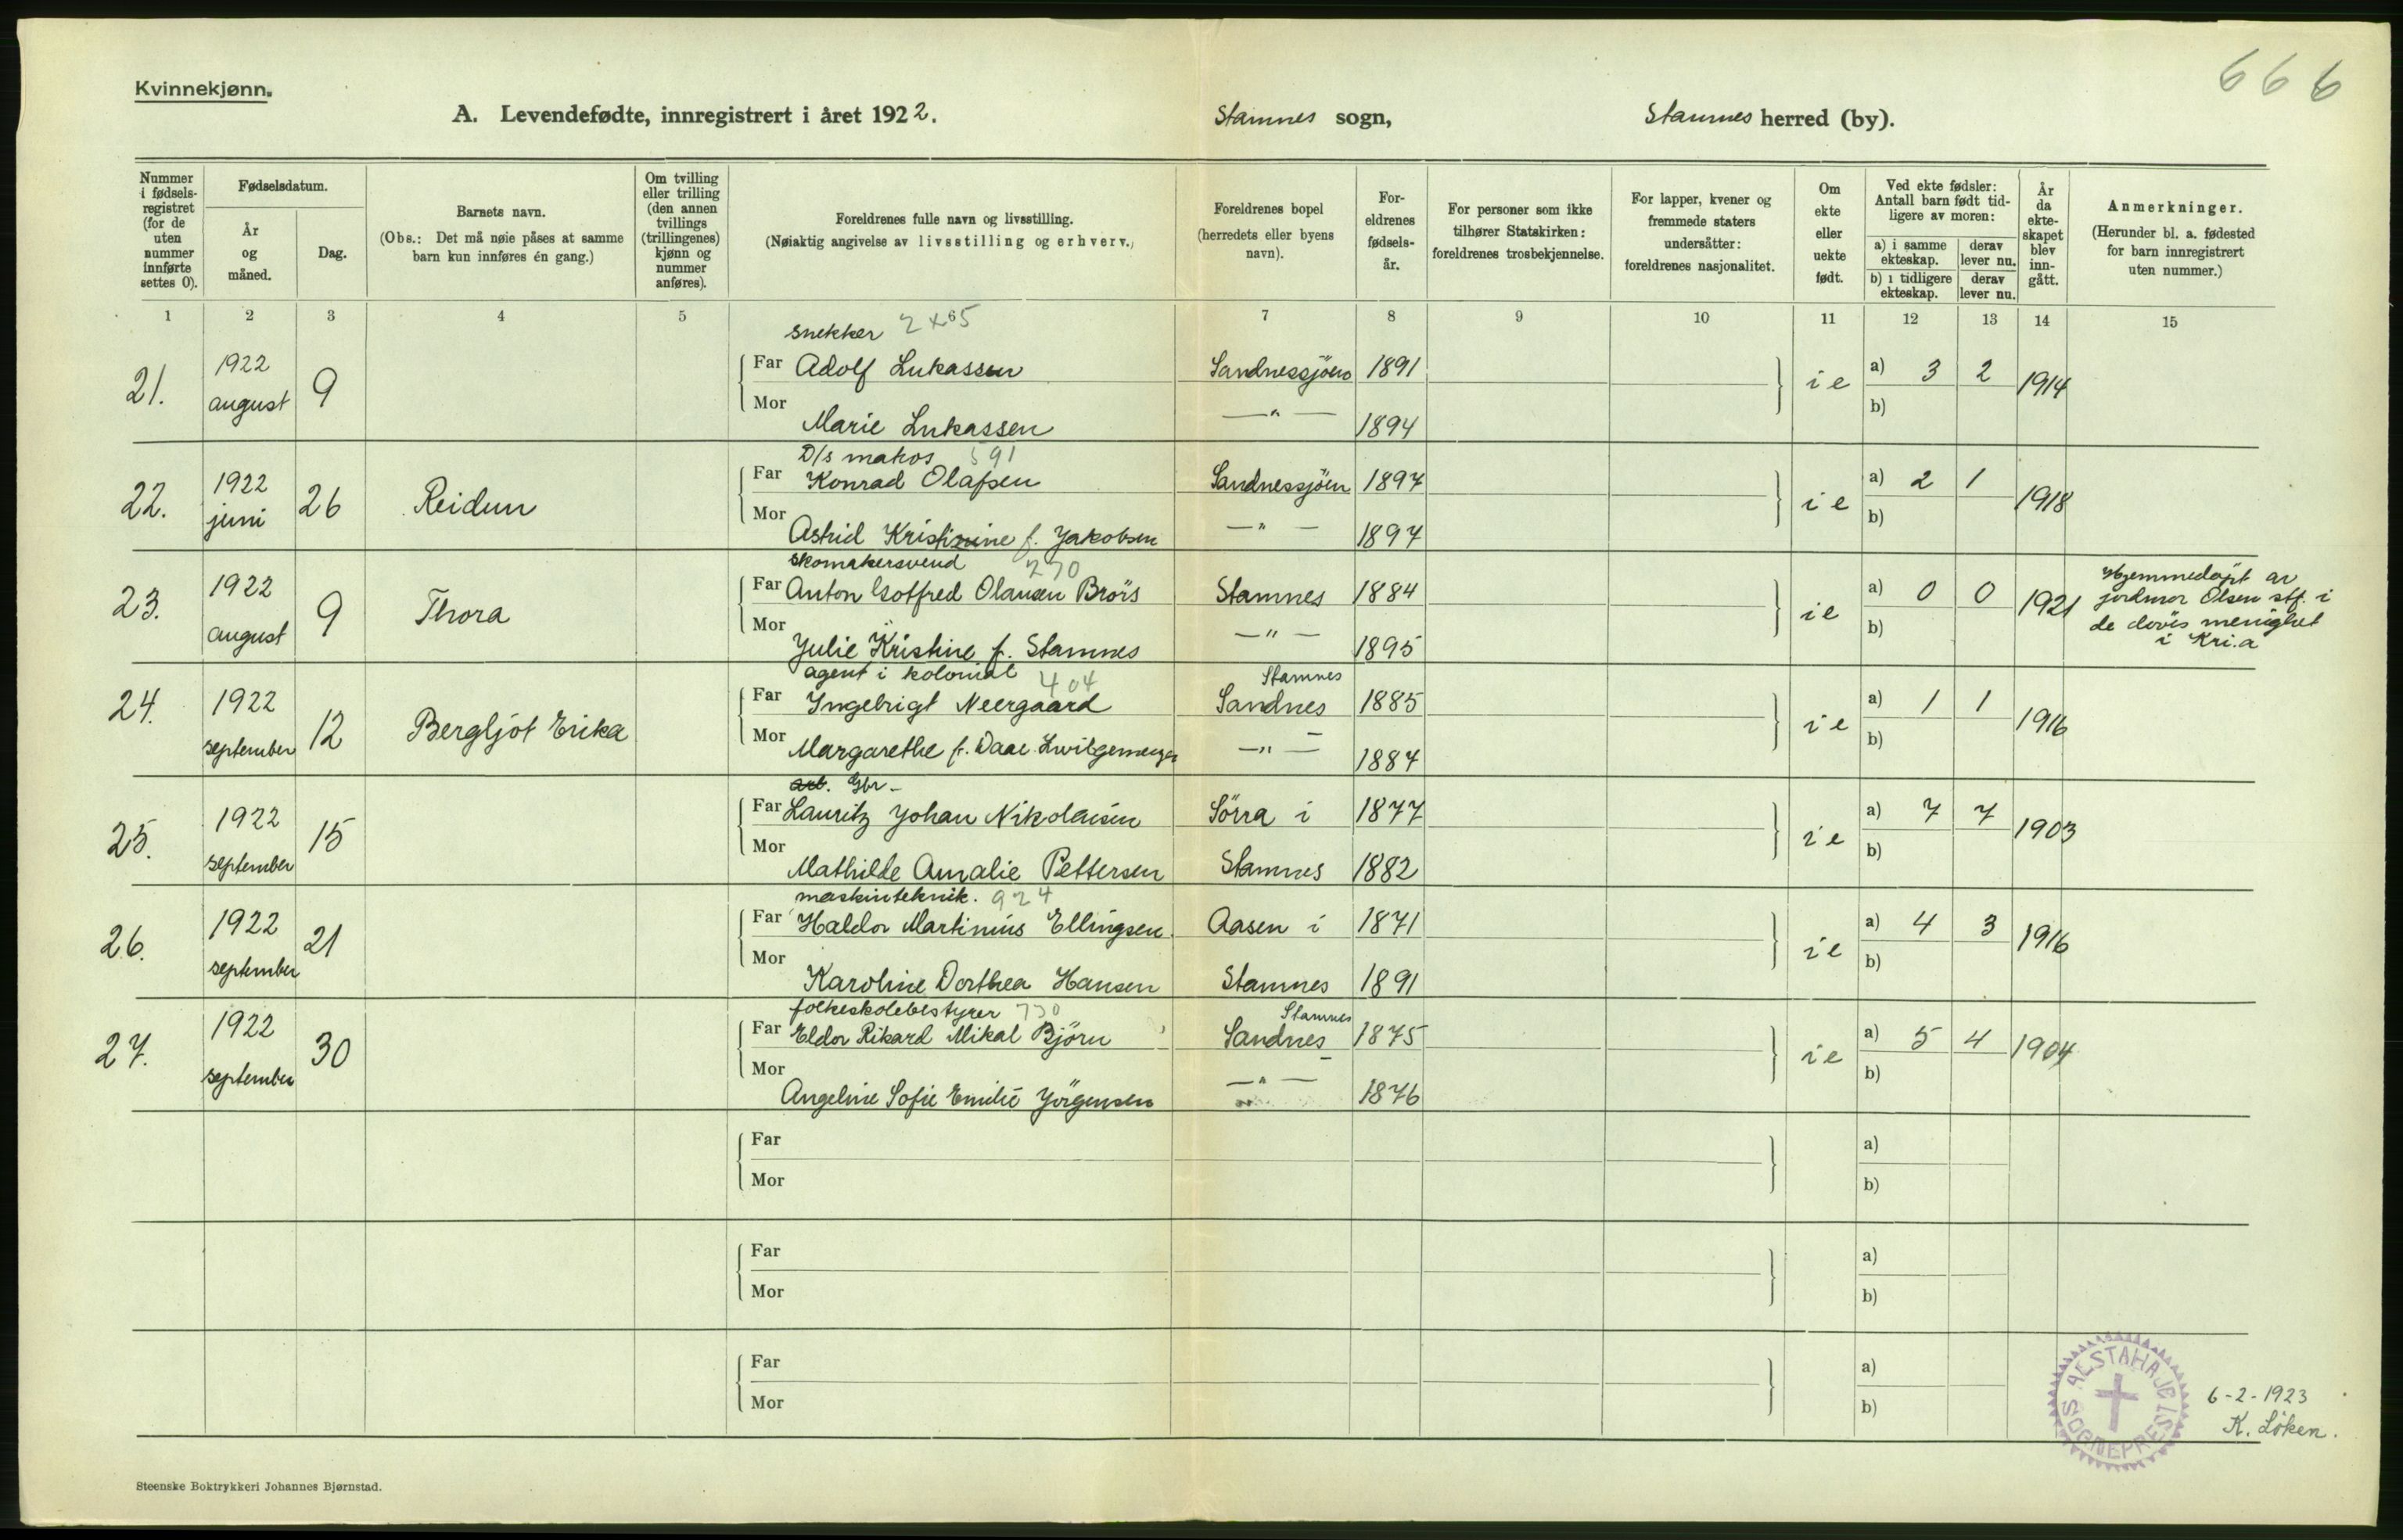 666
Kvinnekjønn.
A. Levendefødte, innregistrert i året 1922. Stamnes sogn, Stamnes herred (by).
Nummer i fødsels-registret (for de uten nummer innførte settes 0).
Fødselsdatum.
År og måned.
Dag.
Barnets navn.
(Obs.: Det må nøie påses at samme barn kun innføres én gang.)
Om tvilling eller trilling (den annen tvillings (trillingenes) kjønn og nummer anføres).
Foreldrenes fulle navn og livsstilling.
(Nøiaktig angivelse av livsstilling og erhverv.)
Foreldrenes bopel (herredets eller byens navn).
For-eldrenes fødsels-år.
For personer som ikke tilhører Statskirken: foreldrenes trosbekjennelse.
For lapper, kvener og fremmede staters undersåtter: foreldrenes nasjonalitet.
Om ekte eller uekte født.
Ved ekte fødsler: Antall barn født tid-ligere av moren:
a) i samme ekteskap.
derav lever nu.
b) i tidligere ekteskap.
derav lever nu.
År da ekte-skapet blev inn-gått.
Anmerkninger.
(Herunder bl. a. fødested for barn innregistrert uten nummer.)
1 2 3 4 5 6 7 8 9 10 11 12 13 14 15
snekker
21. 1922 august 9 Far Adolf Lukassen Sandnessjöen 1891 i e a) 3 2 1914
Mor Marie Lukassen —"— 1894 b)
D/s matros 591
22. 1922 juni 26 Reidun Far Konrad Olafsen Sandnessjöen 1897 i e a) 2 1 1918
Mor Astrid Kristine f. Jakobsen —"— 1897 b)
skomakersvend 270
23. 1922 august 9 Thora Far Anton Gotfred Olausen Brörs Stamnes 1884 i e a) 0 0 1921 Hjemmedøpt av jordmor Olsen stf. i de døves menighet i Kri.a
Mor Julie Kristine f. Stamnes —"— 1895 b)
agent i kolonial 404 Stamnes
24. 1922 september 12 Bergljot Erika Far Ingebrigt Neergaard Sandnes 1885 i e a) 1 1 1916
Mor Margarethe f. Daae —"— 1887 b)
arb. Gbr-
25. 1922 september 15 Far Lauritz Johan Nikolaisen Sörra i 1877 i e a) 7 7 1903
Mor Mathilde Amalie Pettersen Stamnes 1882 b)
maskinteknik. 924
26. 1922 september 21 Far Haldor Martinius Ellingsen Aasen i 1871 i e a) 4 3 1916
Mor Karoline Dorthea Hansen Stamnes 1891 b)
folkeskolebestyrer 730 Stamnes
27. 1922 september 30 Far Eldor Rikard Mikal Björn Sandnes 1875 i e a) 5 4 1904
Mor Angeline Sofie Emilie Jörgensen —"— 1876 b)
Far a)
Mor b)
Far a)
Mor b)
Far a)
Mor b)
SOGNEPREST
6-2-1923
K. Löken.
Steenske Boktrykkeri Johannes Bjørnstad.